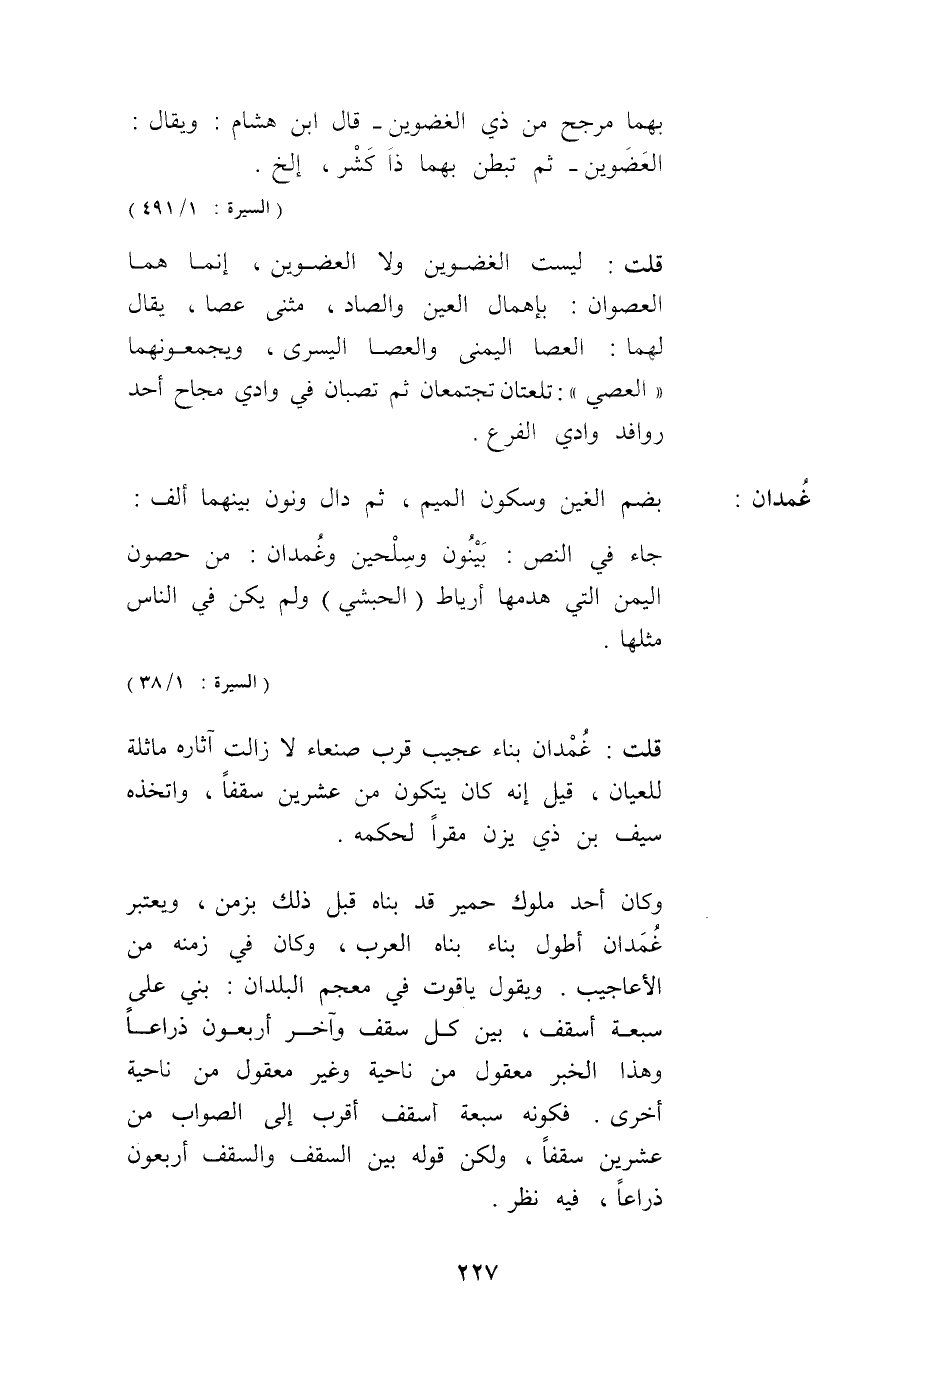 بهما مرجح من ذي الغضوين ـ قال ابن هشام : ويقال :
العَضَوين ـ ثم تبطن بهما ذا كَشْر ، إلخ .
( السيرة : ٤٩١/١ )
قلت : ليست الغضوين ولا العضوين ، إنما هما
العصوان : بإهمال العين والصاد ، مثنى عصا ، يقال
لهما : العصا اليمنى والعصا اليسرى ، ويجمعونهما
« العصي » : تلعتان تجتمعان ثم تصبان في وادي مجاح أحد
روافد وادي الفرع .
غُمدان : بضم الغين وسكون الميم ، ثم دال ونون بينهما ألف :
جاء في النص : بَيْنُون وسِلْحين وغُمدان : من حصون
اليمن التي هدمها أرياط ( الحبشي ) ولم يكن في الناس
مثلها .
( السيرة : ٣٨/١ )
قلت : غُمْدان بناء عجيب قرب صنعاء لا زالت آثاره ماثلة
للعيان ، قيل إنه كان يتكون من عشرين سقفاً ، واتخذه
سيف بن ذي يزن مقراً لحكمه .
وكان أحد ملوك حمير قد بناه قبل ذلك بزمن ، ويعتبر
غُمَدان أطول بناء بناه العرب ، وكان في زمنه من
الأعاجيب . ويقول ياقوت في معجم البلدان : بني على
سبعة أسقف ، بين كل سقف وآخر أربعون ذراعاً
وهذا الخبر معقول من ناحية وغير معقول من ناحية
أخرى . فكونه سبعة أسقف أقرب إلى الصواب من
عشرين سقفاً ، ولكن قوله بين السقف والسقف أربعون
ذراعاً ، فيه نظر .
٢٢٧